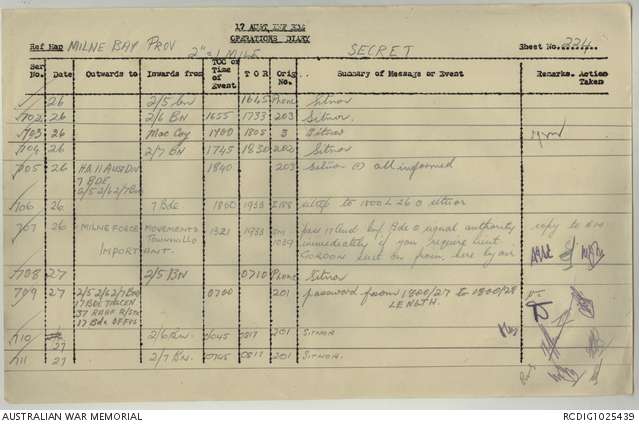 17 AUST INF BDE
OPERATIONS DIARY
Ref Map MILNE BAY PROV 2" = 1 MILE SECRET Sheet No. 224
Ser No. Date Outwards to Inwards from TOO or Time of Event T O R Orig No. Summary of Message or Event Remarks. Action Taken
26 2/5 Bn 1645 Phone Sitnor
702 26 2/6 BN 1655 1733 203 Sitnor.
703 26 Mac Coy 1700 1805 3 Sitnor
704 26 2/7 BN 1745 1830 202 Sitnor
705 26 HQ 11 Aust Div 1840 203 Sitnor all informed
7 BDE
2/5 2/6 2/7 Bn
706 26 7 Bde 1800 1933 to 1800 L 26
707 26 MILNE FORCE MOVEMENTS 1321 1933 pass 17 Aust Inf Bde usual authority copy to
TOWNVILLE 1039 immediately if you require Lieut
IMPORTANT. GORDON sent on from here by air
708 27 2/5 BN 0710 Phone Sitnor
709 27 2/5 2/6 2/7 Bn 0700 201 password from 1800/27 to 1800/28
17 BDE LENGTH.
37
17 Bde OFFRS
710 27 2/6 Bn. 0645 0817 201 SITNOR
711 27 2/7 Bn. 0745 0817 201 SITNOR.
AUSTRALIAN WAR MEMORIAL RCDIG1025439